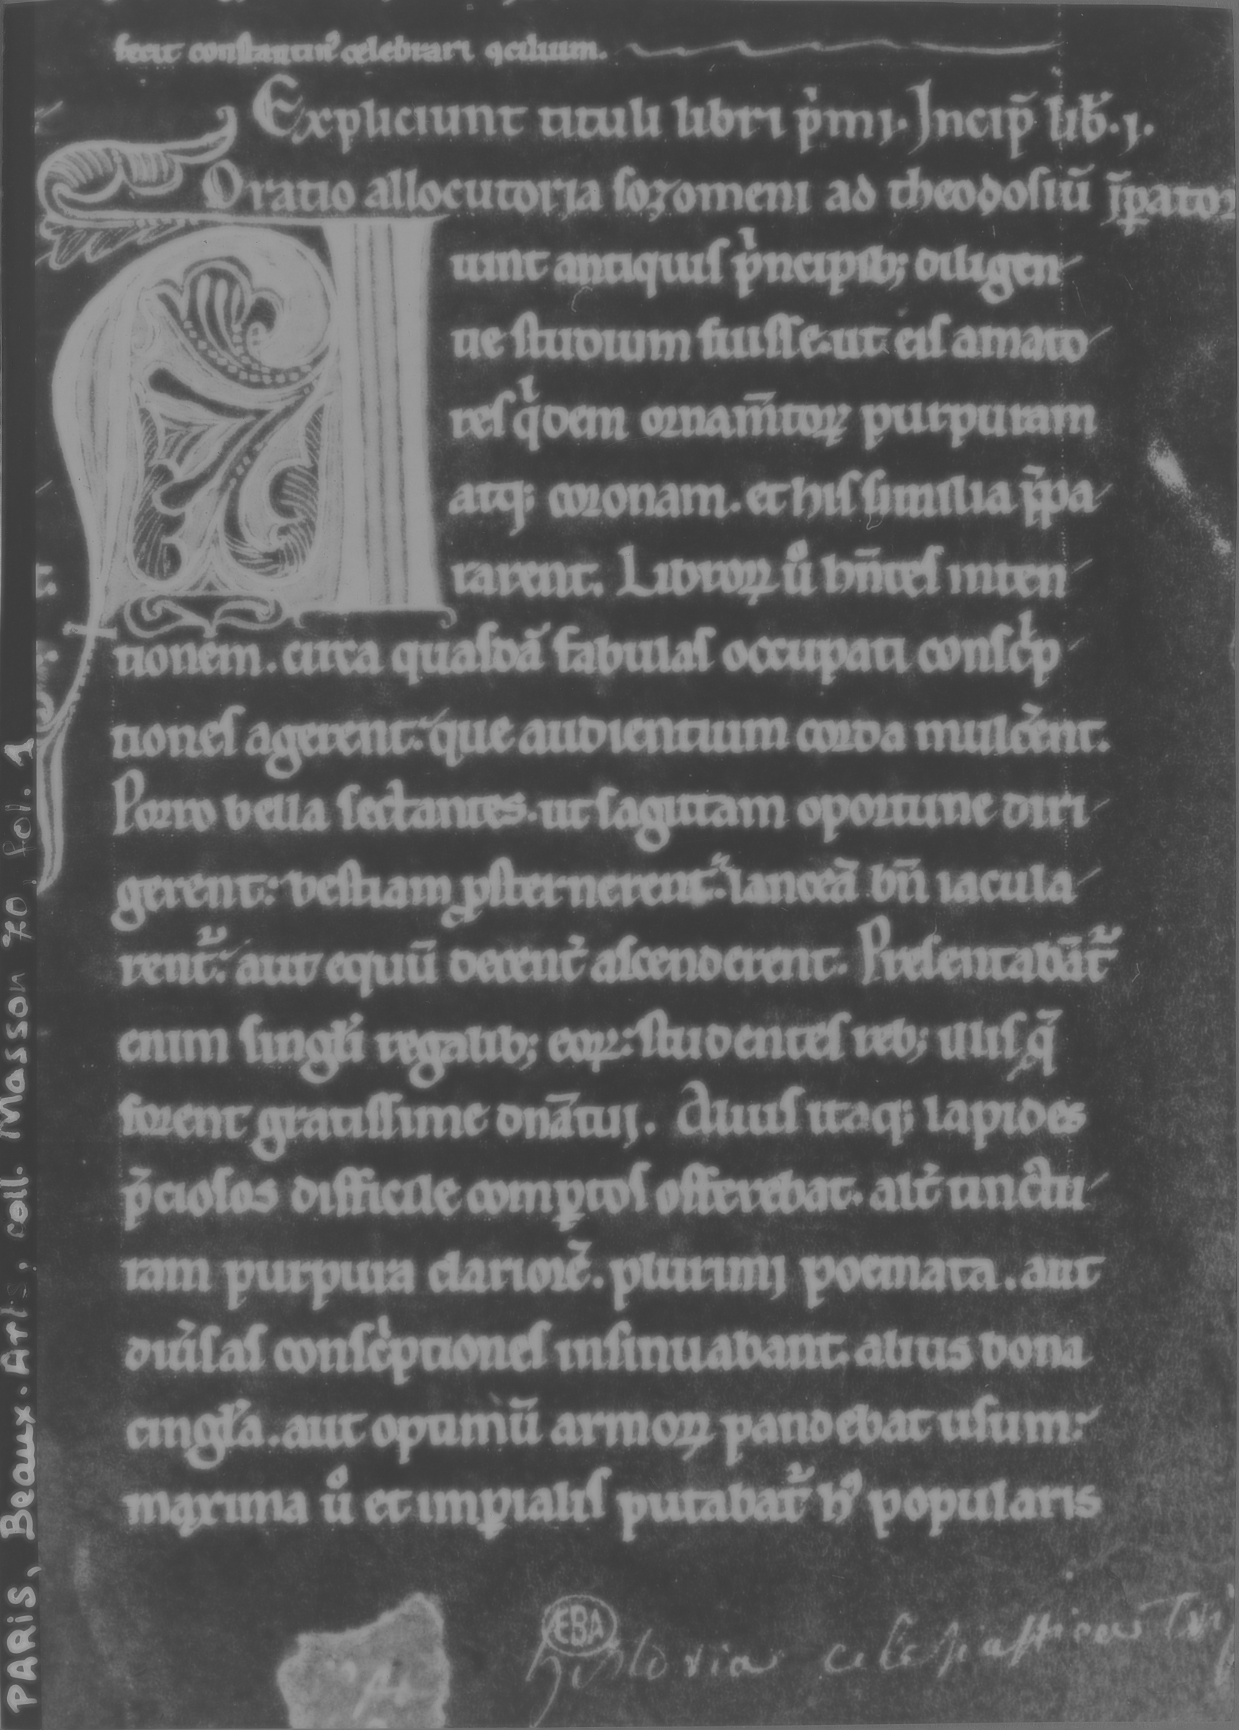 fecit constantin᷒ celebrari ɋciliium.
Expliciunt tituli libri p̍mi. Incip̃ lib̃.i.
Oratio allocutoria sozomeni ad theodosiũ ĩꝑator
Aiunt antiquis p̍ncipib; diligen
tie studium fuisse. ut eis amato
res q̍dem ornam̃toꝝ purpuram
atq; coronam. et his similia p̃pa
rarent. Libroꝝ ů hñtes inten
tionem. circa quasdã fabulas occupati consc̍p
tiones agerent. que audientium corda mulcẽnt.
Porro bella sectantes. ut sagittam oportune diri
gerent: bestiam ꝓsternerent. lanceã bñ iacula
rent᷑. aut equũ decent̃ ascenderent. Presentabãt᷑
enim singl̃i regalib; eoꝝ: studentes reb; illis q̃
forent gratissime dnãtij. Aliuis itaq; lapides
p̃ciosos difficile comꝑtos offerebat. alt̃ tinctu
ram purpura clariorẽ. plurimi poemata. aut
diũsas consc̍ptiones insinuabant. alius bona
cingl̃a. aut optimũ armoꝝ pandebat usum:
maxima ů et imꝑialis putabat᷑ h᷒ popularis
ÉBA
historia
PARIS, Beaux-Arts, coll. Masson 70, fol. 1